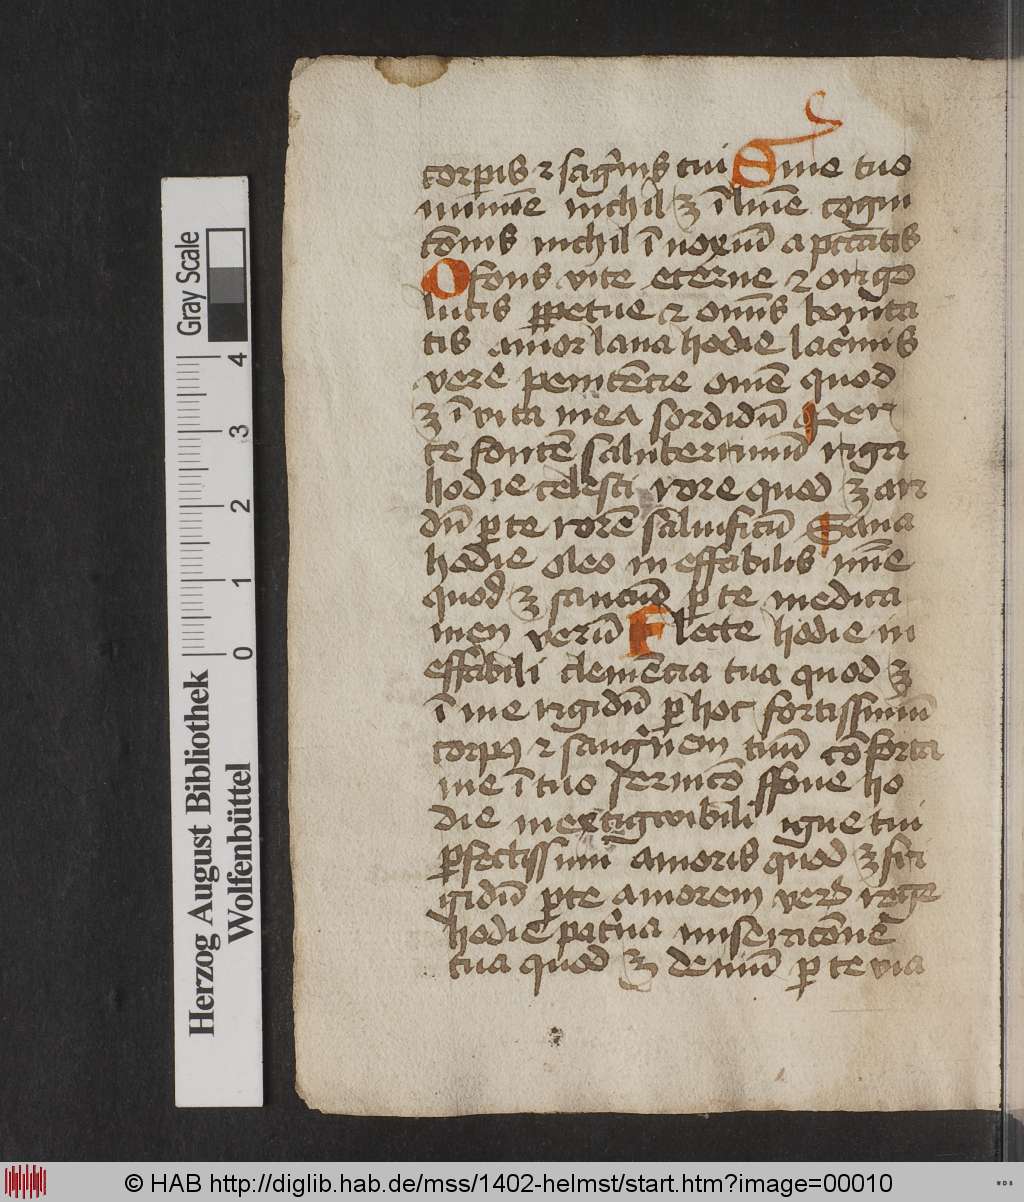 corpis ⁊ sāg̉nis tui Sine tuo
numine nichil ꝫ ī lumē cogni
tōnis nichil ī noxiū a pctātis
O fons vite eterne ⁊ origo
lucis ꝑpetue ⁊ omīs bonita
tis amor laua hodie lac̉mis
vere penitēcie omē quod
ꝫ ī vita mea sordidū Per
te fontē saluberrimū riga
hodie celesti rore quod ꝫ ari
dū ꝑ te rorē saluificū Sana
hodie oleo in effabilis mīe
quod ꝫ sauciū ꝑ te medica
men verū Flecte hodie in
effabili clemēcia tua quod ꝫ
ī me rigidū ꝑ hoc fortissimū
corpꝰ ⁊ sang̉nem tuū cōforta
me ī tuo seruicō ffoue ho
die inextigwibili igne tui
ꝑfectissimi amoris quod ꝫ fri
gidū ꝑ te amorem verū rege
hodie pat̉na miseracōne
tua quod ꝫ deuiū ꝑ te via
Herzog August Bibliothek
Wolfenbüttel
Gray Scale
0 1 2 3 4
© HAB http://diglib.hab.de/mss/1402-helmst/start.htm?image=00010